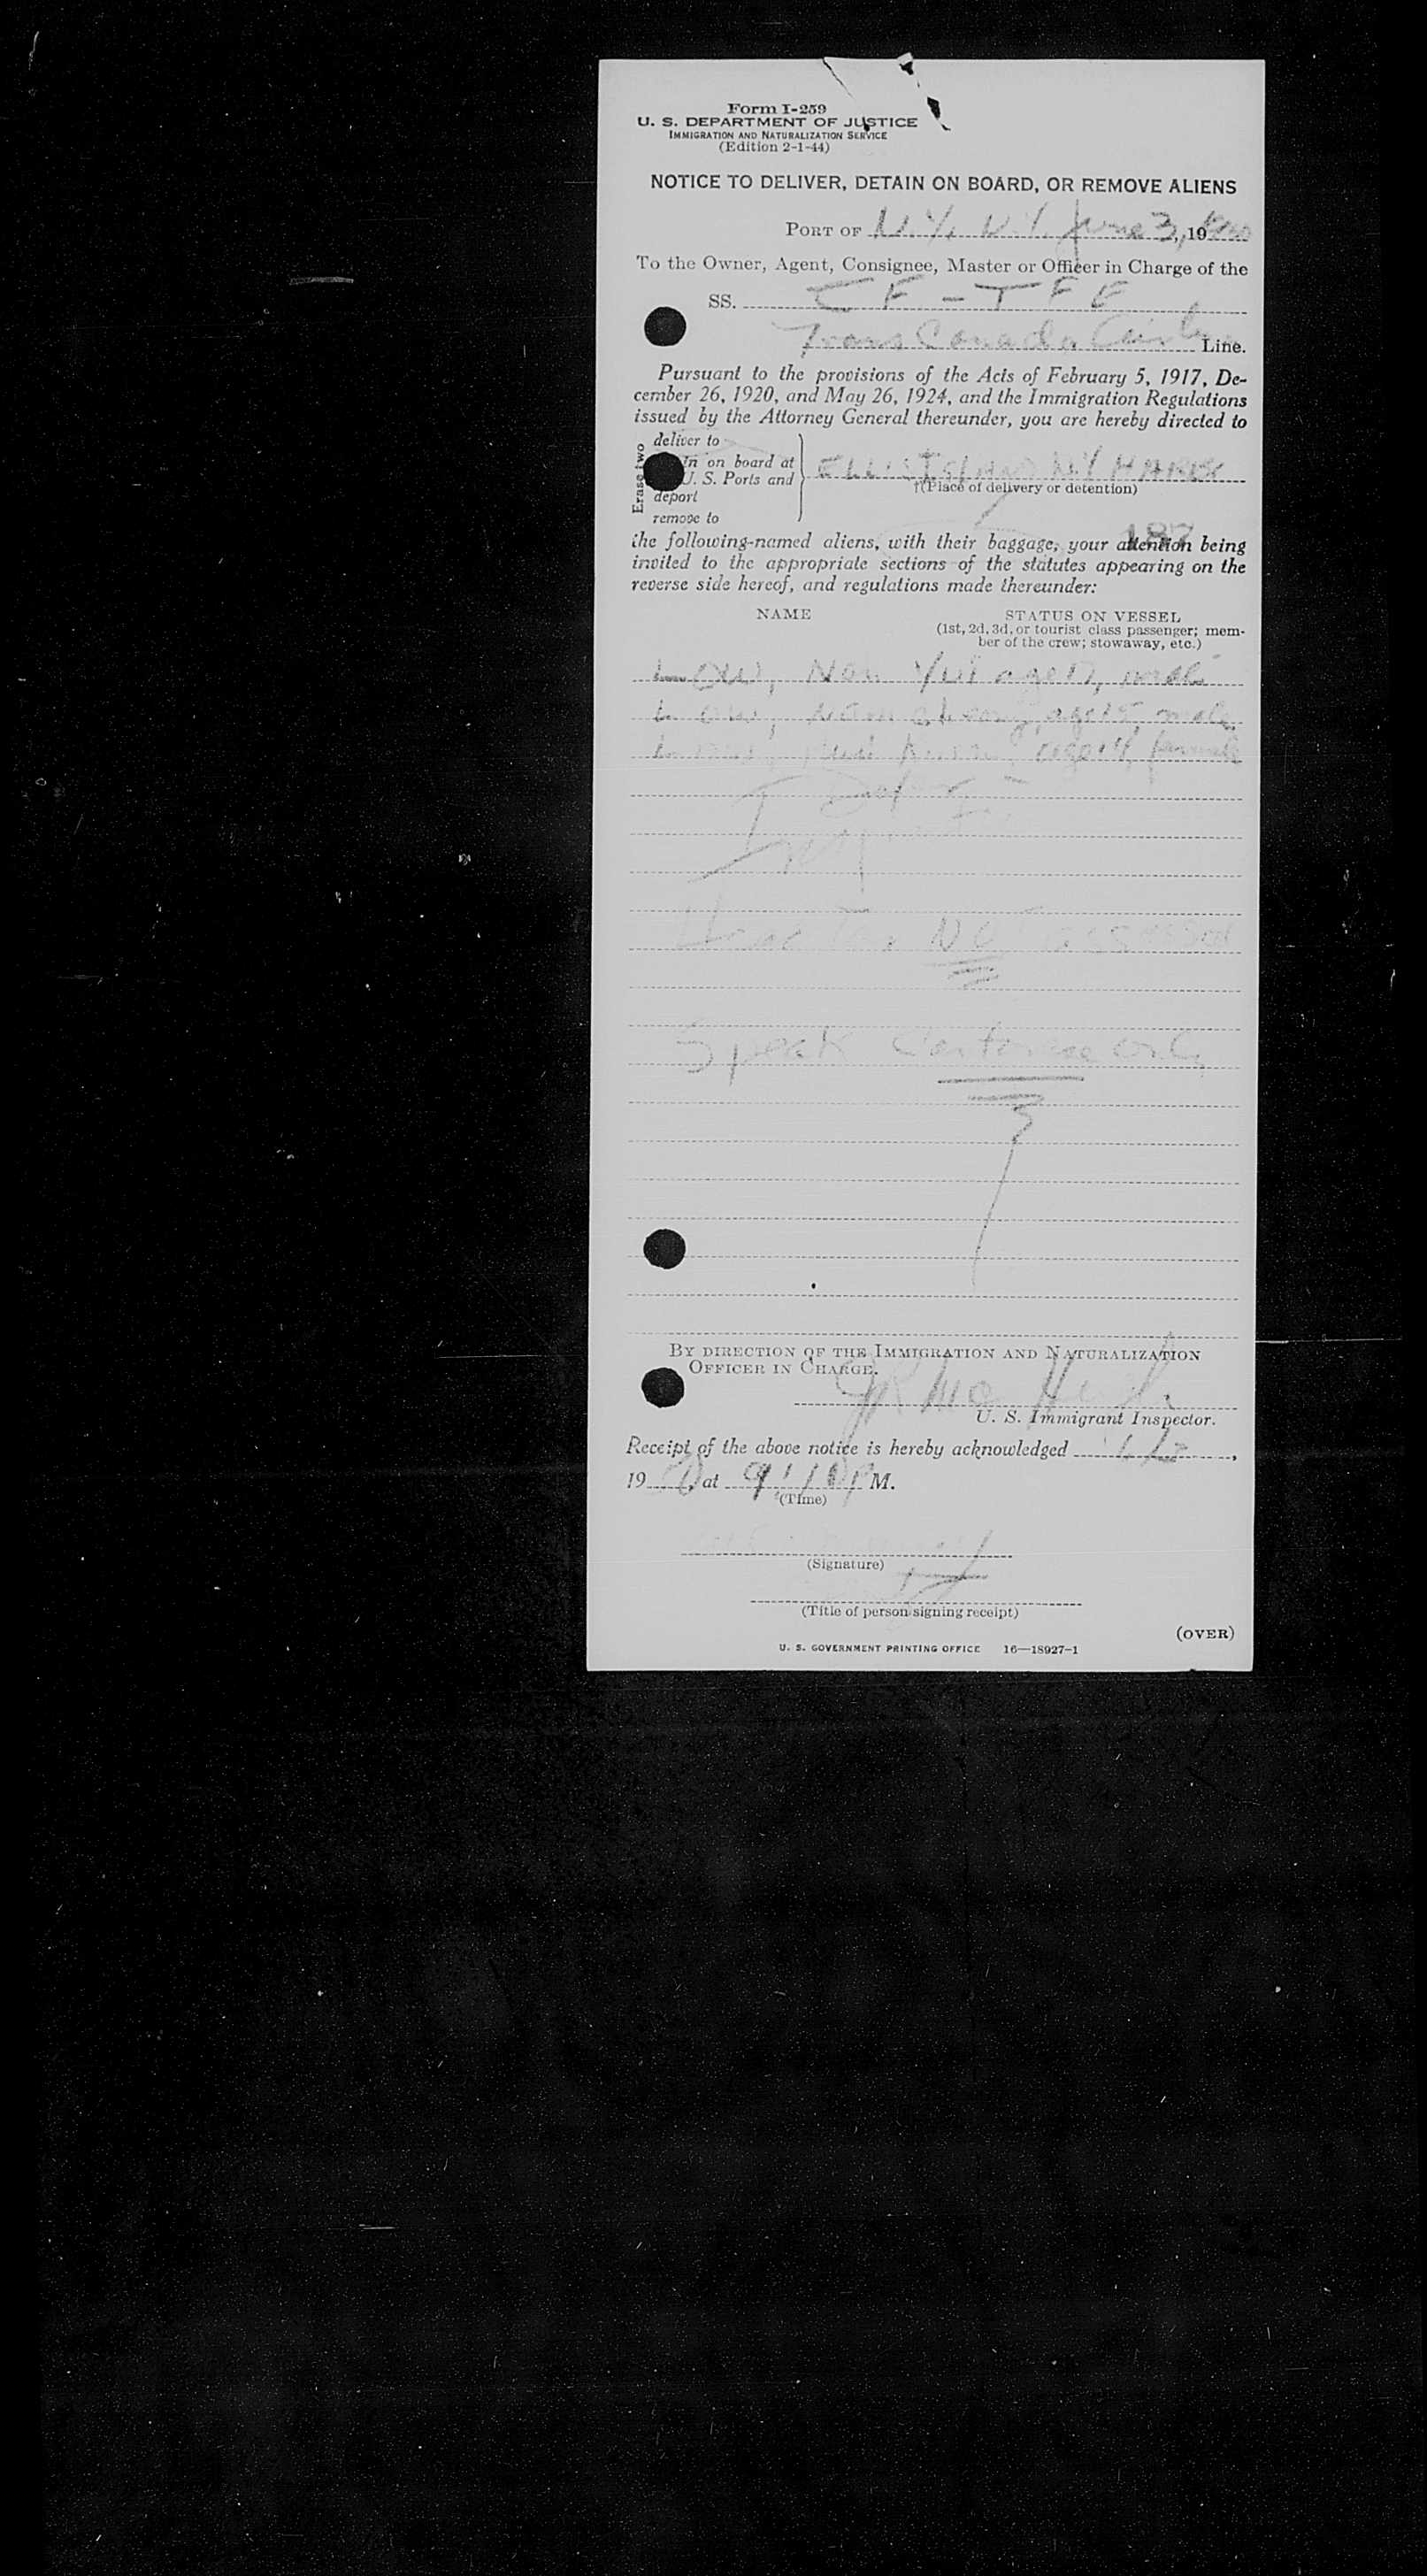 Form I-259
U. S. DEPARTMENT OF JUSTICE
IMMIGRATION AND NATURALIZATION SERVICE
(Edition 2-1-44)
NOTICE TO DELIVER, DETAIN ON BOARD, OR REMOVE ALIENS
PORT OF N.Y. N.Y. June 3, 19
To the Owner, Agent, Consignee, Master or Officer in Charge of the
SS. CF-TFE
Trans Canada Air Line.
Pursuant to the provisions of the Acts of February 5, 1917, De-
cember 26, 1920, and May 26, 1924, and the Immigration Regulations
issued by the Attorney General thereunder, you are hereby directed to
Erase two
deliver to
in on board at
U. S. Ports and
deport
remove to
ELLIS ISLAND N.Y. HARBOR
†(Place of delivery or detention)
187
the following-named aliens, with their baggage, your attention being
invited to the appropriate sections of the statutes appearing on the
reverse side hereof, and regulations made thereunder:
NAME
STATUS ON VESSEL
(1st, 2d, 3d, or tourist class passenger; mem-
ber of the crew; stowaway, etc.)
Low, age 17, male
Low, age 15, male
female
Head Tax NOT assessed
Speak Cantonese only
BY DIRECTION OF THE IMMIGRATION AND NATURALIZATION
OFFICER IN CHARGE.
U. S. Immigrant Inspector.
Receipt of the above notice is hereby acknowledged
19 at 9:10 P M.
(Time)
(Signature)
(Title of person signing receipt)
(OVER)
U. S. GOVERNMENT PRINTING OFFICE 16—18927-1